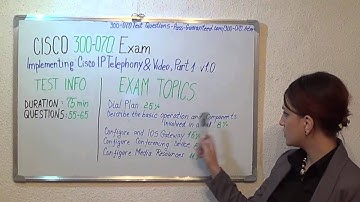 300-070 Test Questions - Pass-Guaranteed.com/300-070.htm
CISCO 300-070 Exam
Implementing Cisco IP Telephony & Video, Part 1 v1.0
TEST INFO
DURATION: 75 min
QUESTIONS: 55-65
EXAM TOPICS
Dial Plan 25%
Describe the basic operation and components
Involved in a 8%
Configure and IOS Gateway 16%
Configure Conferencing
Configure Media Resources